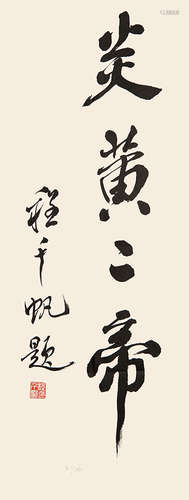 炎黄二帝
程千帆题